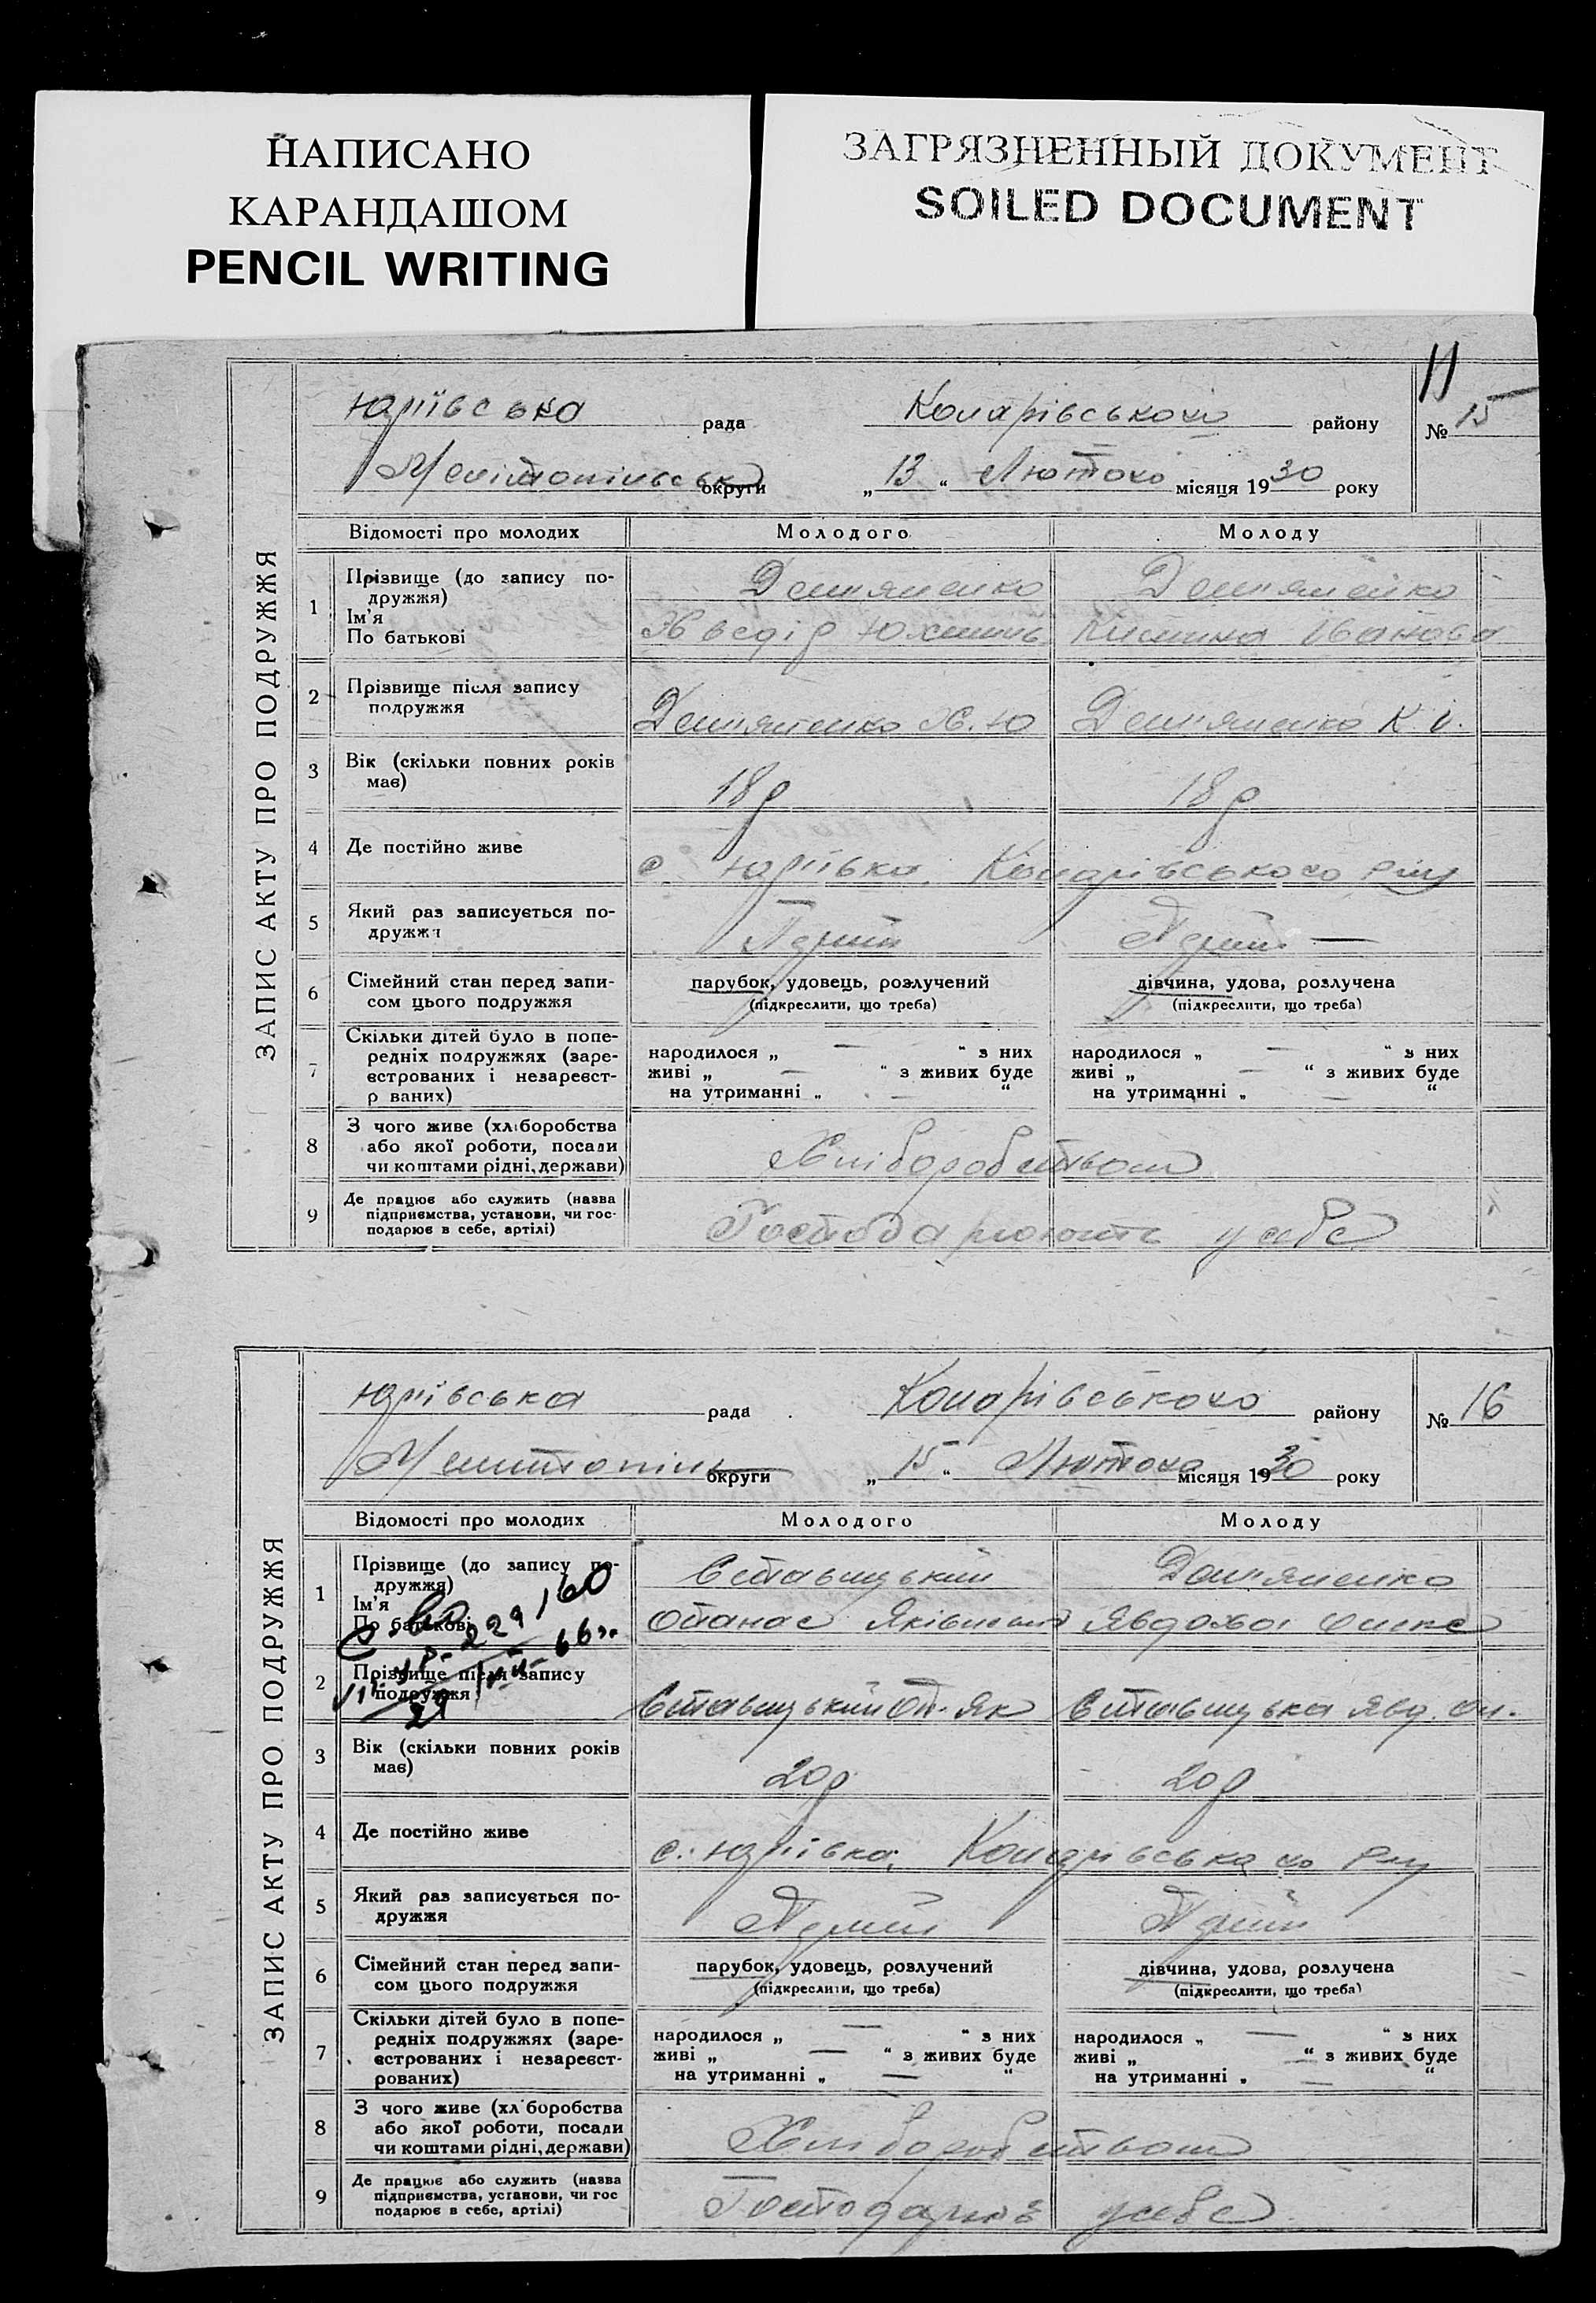 НАПИСАНО
КАРАНДАШОМ
PENCIL WRITING
ЗАГРЯЗНЕННЫЙ ДОКУМЕНТ
SOILED DOCUMENT
11
ЗАПИС АКТУ ПРО ПОДРУЖЖЯ
Юріївська рада Коларівського району № 15
Мелітопільськ округи „ 13 “ Лютого місяця 1930 року
Відомості про молодих Молодого Молоду
1 Прізвище (до запису подружжя) Дем'яненко Дем'яненко
Ім’я
По батькові Хведір Юхимів Іванова
2 Прізвище після запису
подружжя Дем'яненко Х. Ю Дем'яненко К. І.
3 Вік (скільки повних років
має) 18 р 18 р
4 Де постійно живе с Юріївка, Коларівського р-ну
5 Який раз записується по-
дружжя Перший Перший —
6 Сімейний стан перед запи- парубок, удовець, розлучений дівчина, удова, розлучена
сом цього подружжя (підкреслити, що треба) (підкреслити, що треба)
7 Скільки дітей було в попе-
редніх подружжях (заре- народилося „ — “ з них народилося „ — “ з них
єстрованих і незареєст- живі „ — “ з живих буде живі „ — “ з живих буде
р ваних) на утриманні „ — “ на утриманні „ — “
8 З чого живе (хліборобства
або якої роботи, посади Хліборобством
чи коштами рідні, держави)
9 Де працює або служить (назва
підприємства, установи, чи гос- Господарюють у себе
подарює в себе, артілі)
ЗАПИС АКТУ ПРО ПОДРУЖЖЯ
Юріівська рада Коларівського району № 16
округи „ 15 “ Лютого місяця 1930 року
Відомості про молодих Молодого Молоду
1 Прізвище (до запису по-
дружжя) Єставицький Дем'яненко
Ім’я
По батькові Опанас Явдоха
2 Прізвище після запису
подружжя Єставицький Оп. Як Єставицька Явд. Ол.
3 Вік (скільки повних років
має) 20 р 20 р
4 Де постійно живе с. Юріївка, Коларівського р-ну
5 Який раз записується по-
дружжя Перший Перший
6 Сімейний стан перед запи- парубок, удовець, розлучений дівчина, удова, розлучена
сом цього подружжя (підкреслити, що треба) (підкреслити, що треба)
7 Скільки дітей було в попе-
редніх подружжях (заре- народилося „ — “ з них народилося „ — “ з них
єстрованих і незареєст- живі „ — “ з живих буде живі „ — “ з живих буде
рованих) на утриманні „ — “ на утриманні „ — “
8 З чого живе (хл боробства
або якої роботи, посади Хліборобством
чи коштами рідні, держави)
9 Де працює або служить (назва
підприємства, установи, чи гос Господарює у себе
подарює в себе, артілі)